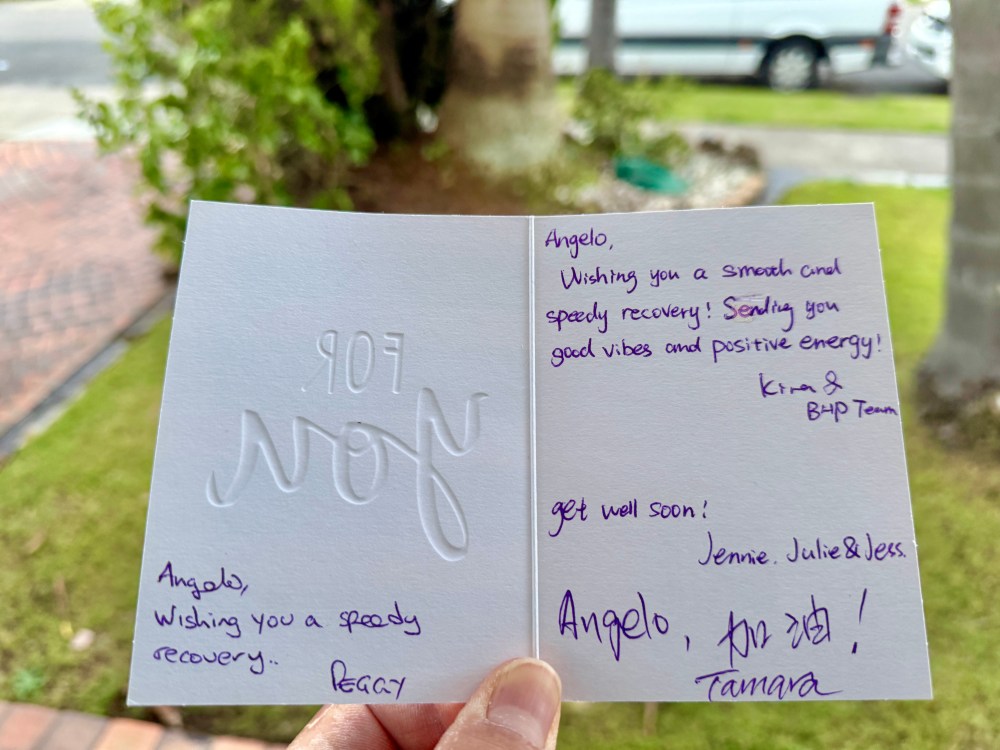 FOR
you
Angelo,
Wishing you a speedy
recovery..
PEGGY
Angelo,
Wishing you a smooth and
speedy recovery! Sending you
good vibes and positive energy!
Kira &
BHP Team
get well soon!
Jennie. Julie & Jess.
Angelo, 加油!
Tamara